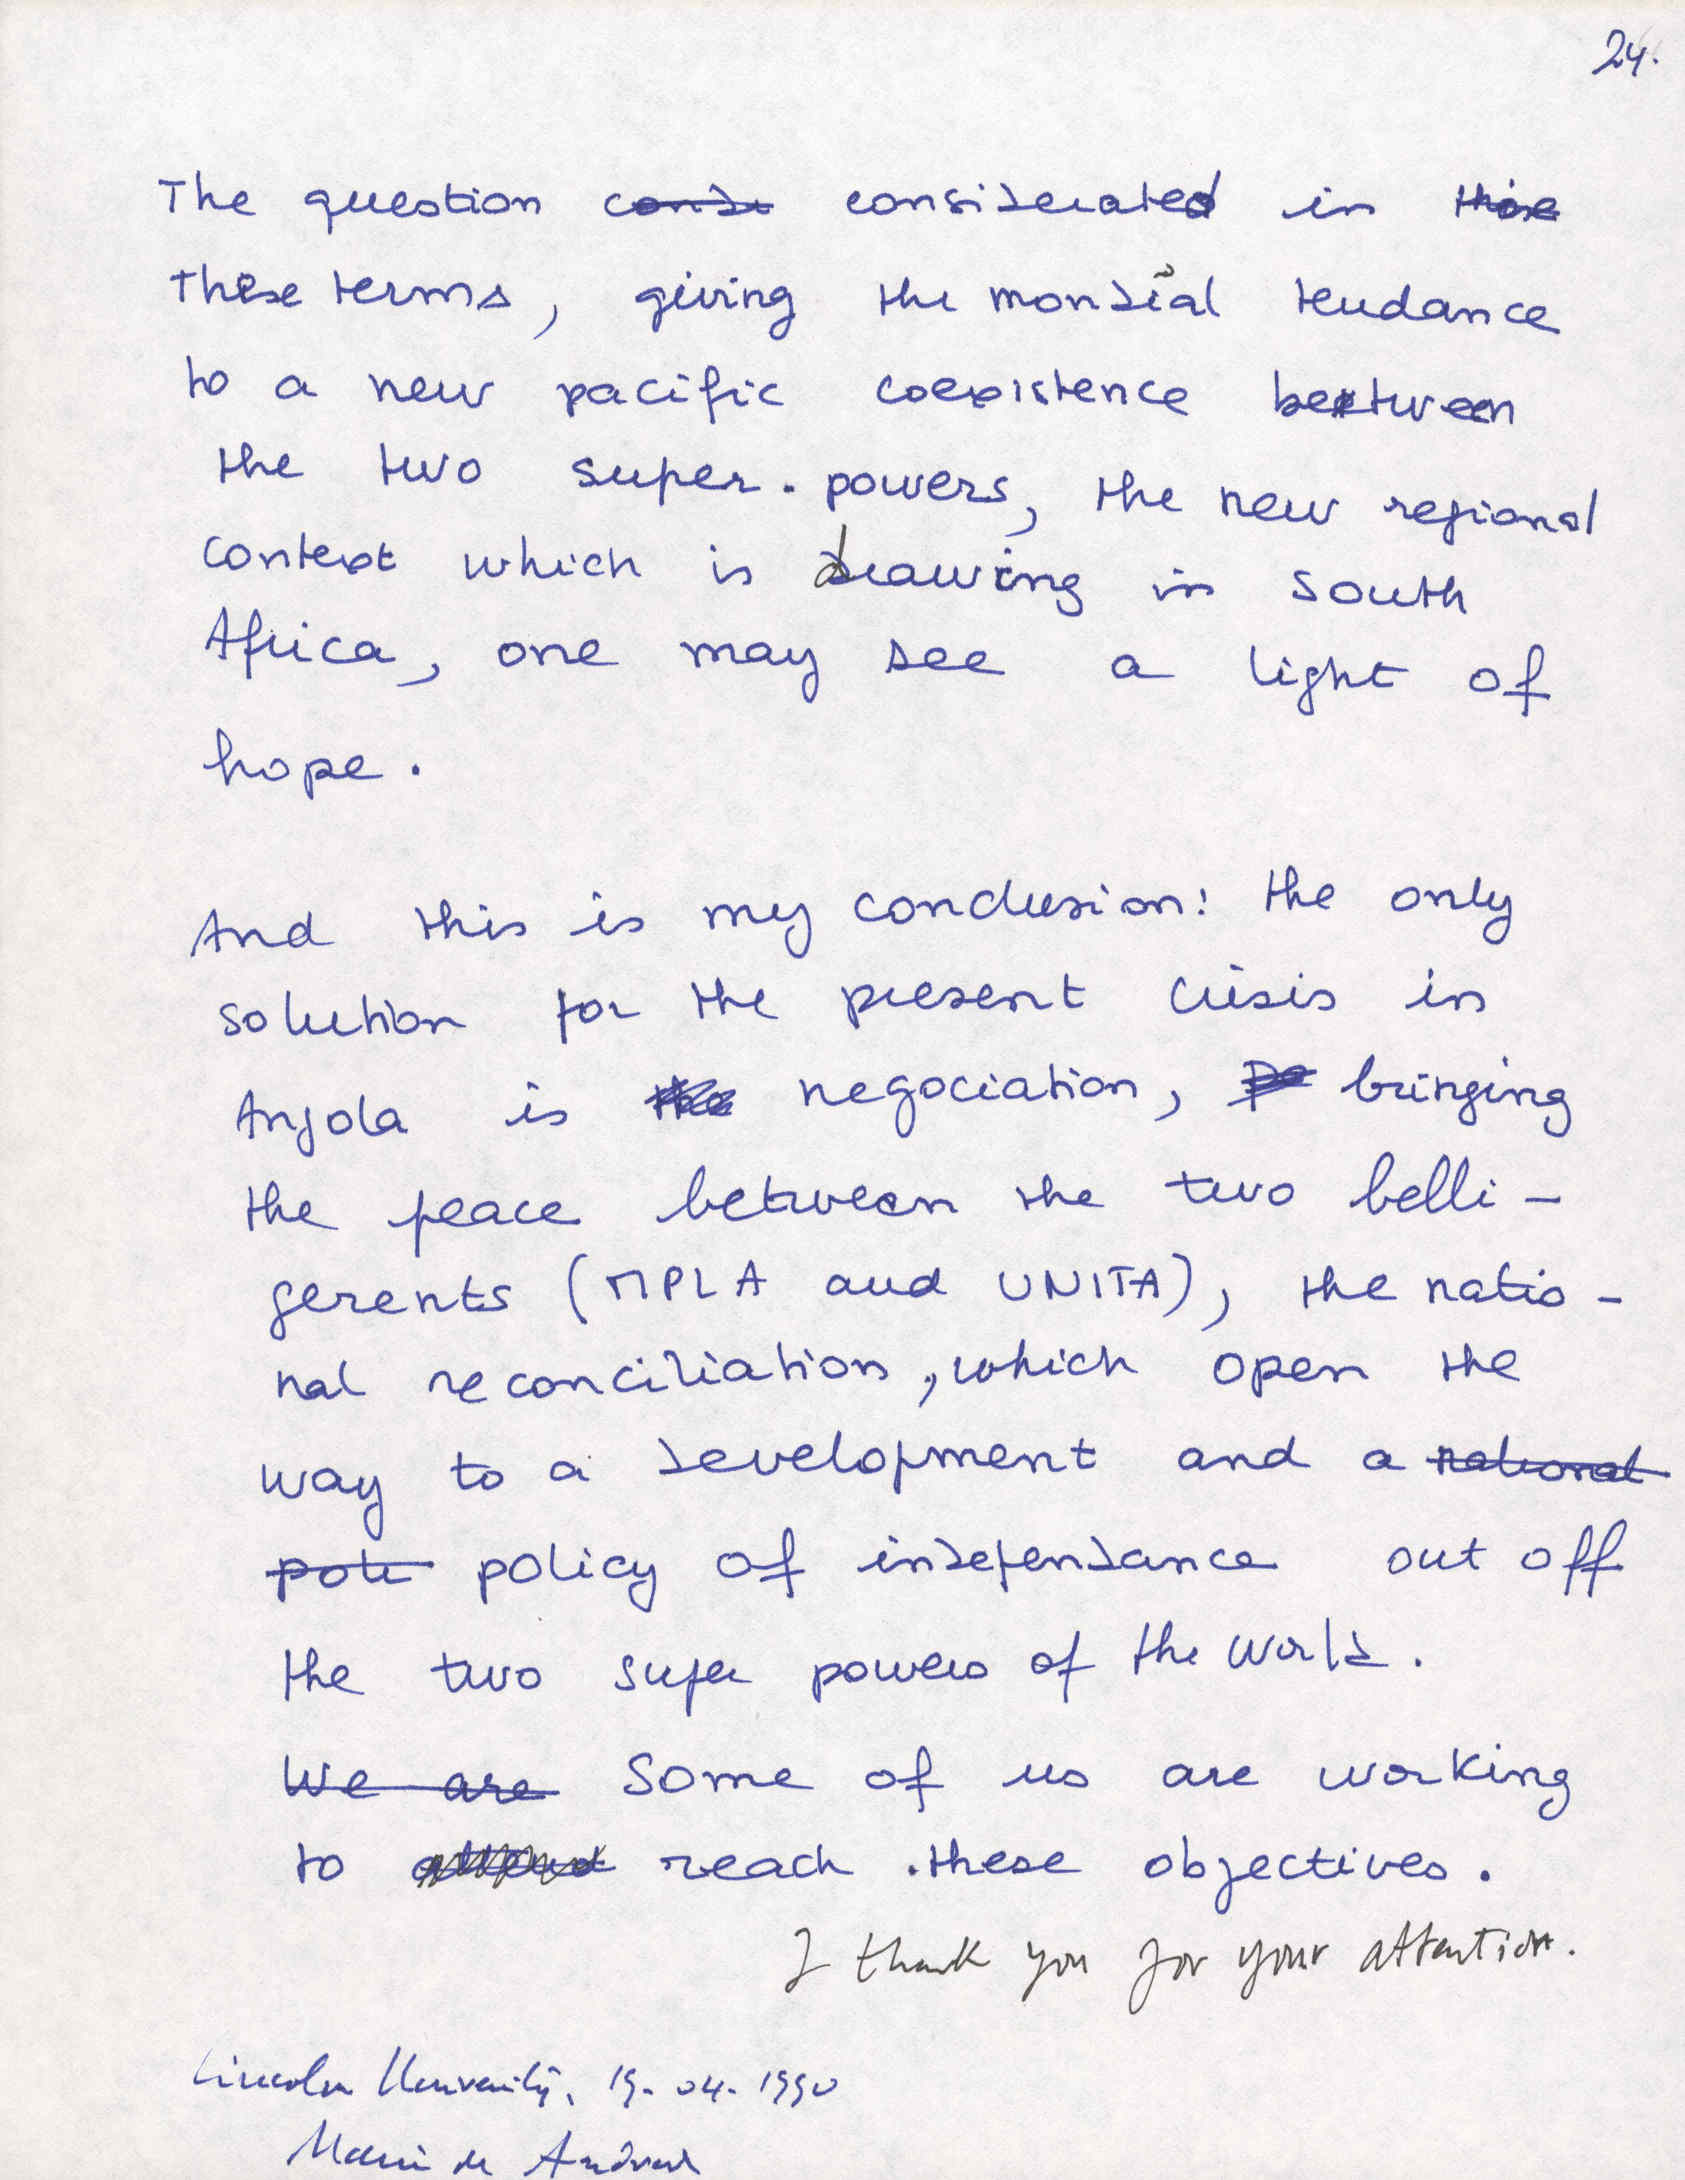 24.
The question considerated in
these terms, giving the mondial tendance
to a new pacific coexistence between
the two super-powers, the new regional
context which is drawing in South
Africa, one may see a light of
hope.
And this is my conclusion: the only
solution for the present crisis in
Angola is negociation, bringing
the peace between the two belli-
gerents (MPLA and UNITA), the natio-
nal reconciliation, which open the
way to a development and a national
policy of independance out off
the two super powers of the world.
We are Some of us are working
to reach these objectives.
I thank you for your attention.
Lincoln University, 19-04-1990
de Andrade